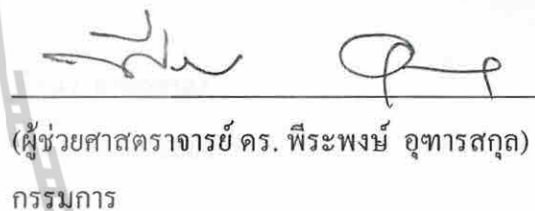 (ผู้ช่วยศาสตราจารย์ ดร. พีระพงษ์ อุฑารสกุล)
กรรมการ